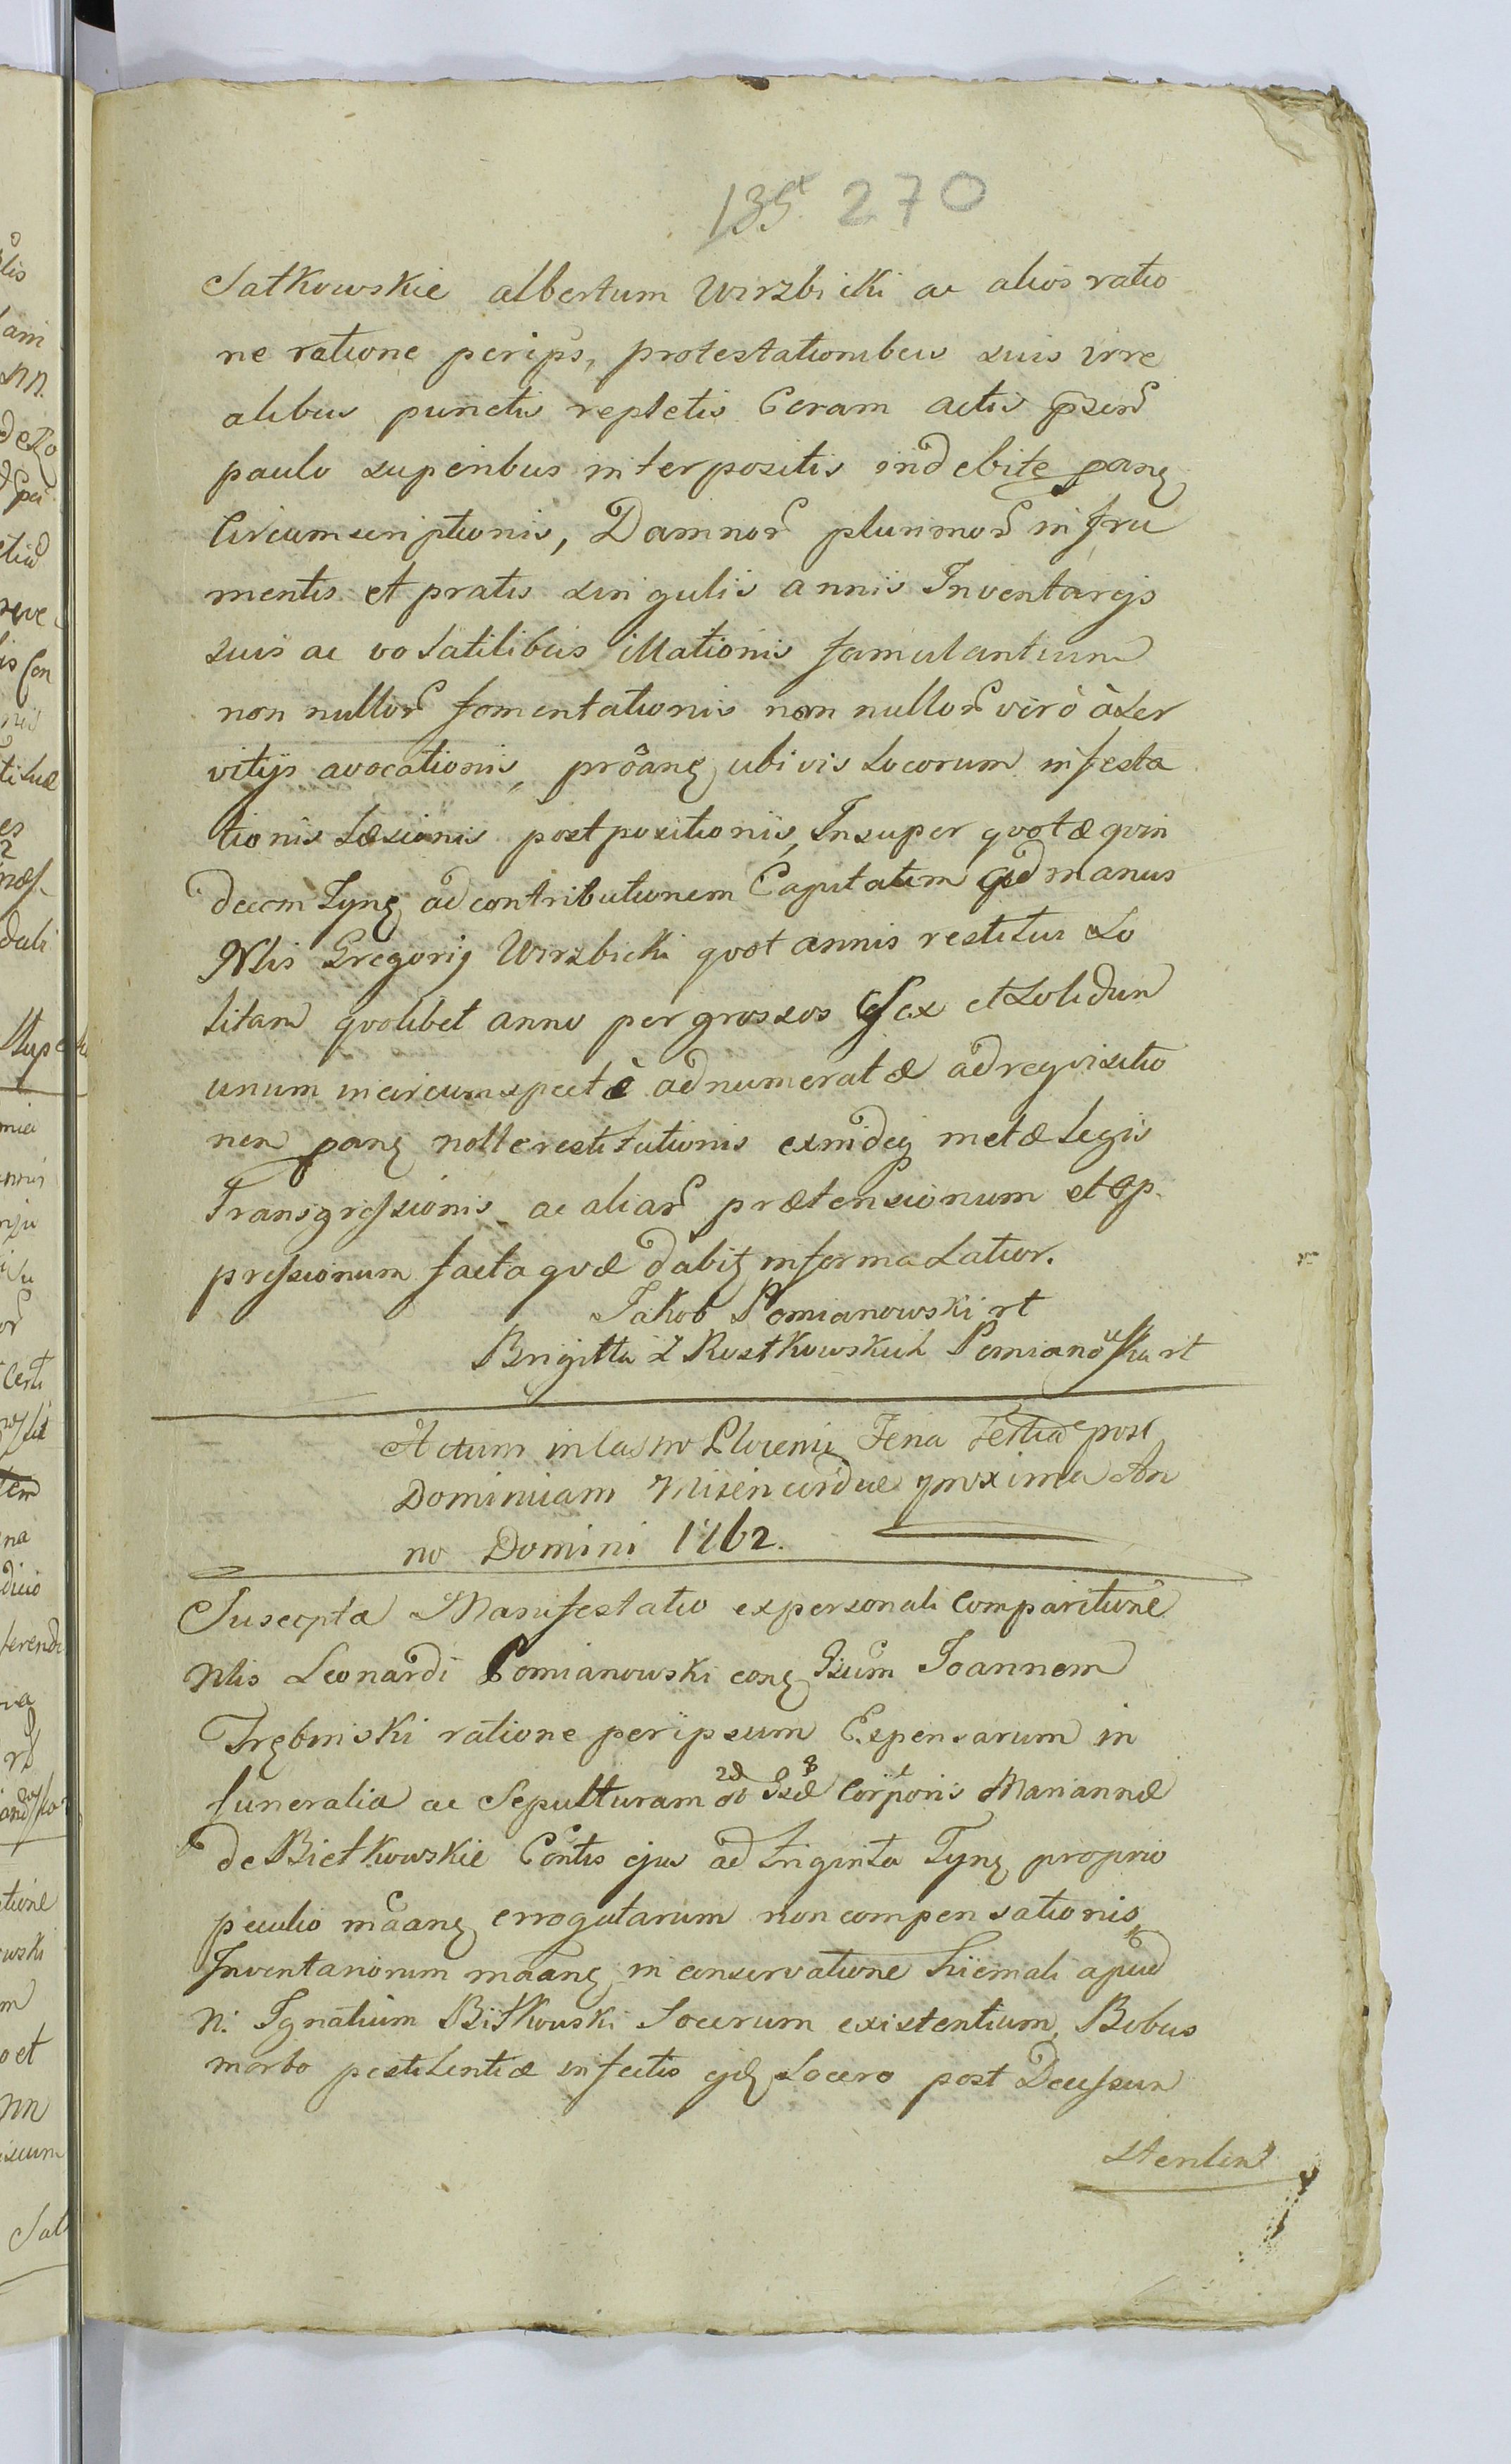 135 270
Satkowskie albertum Wirzbicki ac alios ratio
ne ratione perips, protestationibus suis irre
alibus punctis repletis Coram actis pzen
paulo superibus interpositis indebite pang
Circumscriptionis, Damnor plurimor in fru
mentis et pratis singulis annis Inventarijs
suis ac volatilibus illationis famulantium
non nullor fomentationis non nullor vero à ser
vitijs avocationis, proang ubivis Locorum infesta
tionis Læsionis postpositionis, Insuper qvotæ qvin
decem Tyng ad contributionem Capitatim ad manus
Nlis Gregorij Wirzbicki qvot annis restitus So
litam qvolibet anno per grossos sex et solidum
unum incircumspectè adnumeratæ ad reqvisitio
nem pang nolle restitutionis exindeq metæ Legis
Transgressionis ac aliar prætensionum et op
pressionum facta qvæ dabit, in forma Latior.
Jakob Pomianowski rt
Brigitta Z Rostkowskich Pomianowska rt
Actum in Castro Plocensi Feria Tertia post
Dominicam Misericordiæ proxima An
no Domini 1762.
Suscepta Manifestatio ex personali Comparitione
Nlis Leonardi Pomianowski cong Gsum Joannem
Trębinski ratione per ipsum Expensarum in
funeralia ac Sepulturam Gsæ Corporis Mariannæ
de Bietkowskie Contis ejus ad triginta Tyng proprio
peculio maang errogatarum non compensationis,
Inventariorum maang in conservatione hiemali apud
N: Ignatium Bitkowski Socerum existentium, Bobus
morbo pestilentiæ infectis ejq Socero post Decessum
Sterilem